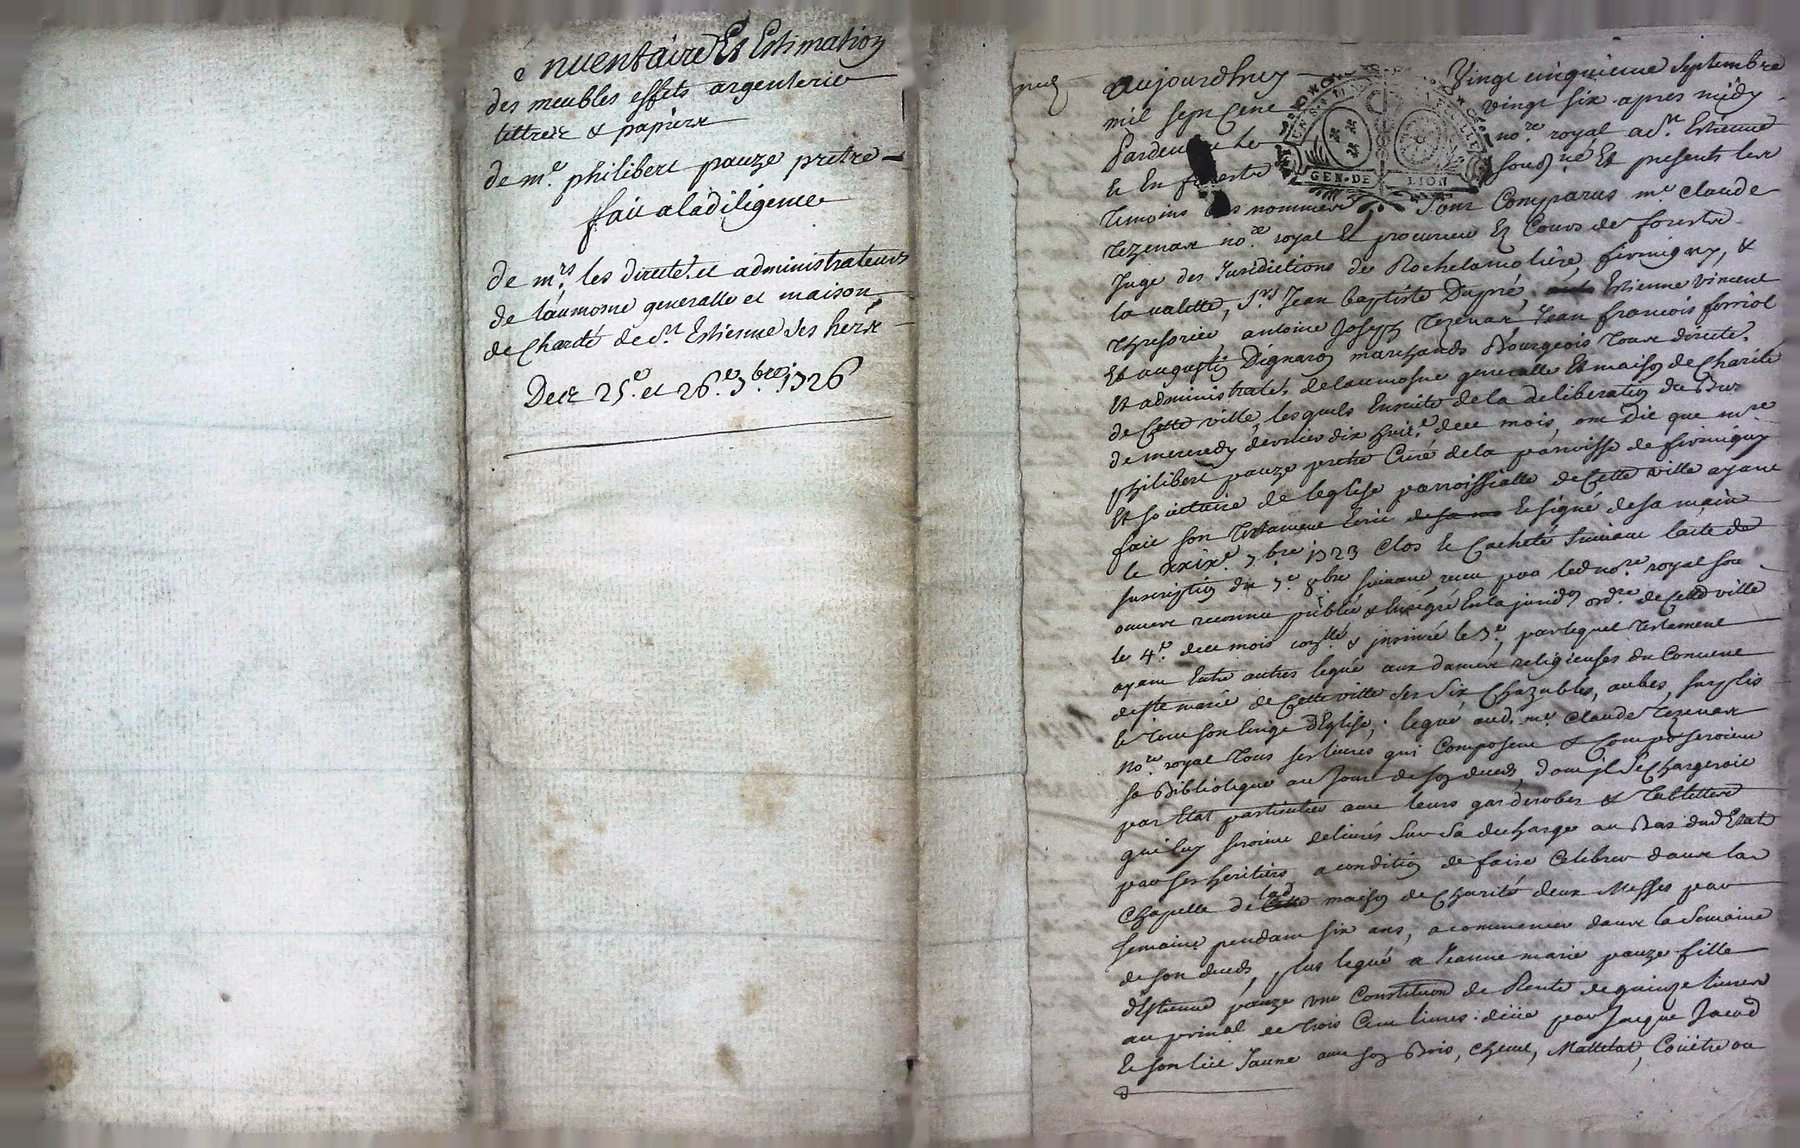 Inventaire Et Estimation
des meubles effets argenterie
lettres & papiers
de m.e philibert pauze pretre
fait a la diligence
de m.rs les direct.rs et administrateurs
de l'aumosne generalle et maison
de Charité de S.t Estienne ses hers
Des 25.e et 26.e 7.bre 1726
Aujourdhuy Vingt cinquieme Septembre
mil sept Cent vingt six apres midy
Pardevant le no.re royal a S.t Estienne
en forests sous.né Et presents les
temoins bas nommes sont Comparus m.e Claude
tezenas no.re royal Et procureur Ez Cours de forests
Juge des Jurisdictions de Rochelamoliere, firmigny, &
la valette, s.rs Jean baptiste Dupré, Estienne vincent
thresorier, antoine Joseph tezenas Jean francois forriol
Et augustin Dignaron marchands Bourgeois tous direct.rs
Et administrat.rs de laumosne generalle Et maison de Charité
de Cette ville, lesquels Ensuite de la deliberation du Bur.
de mercredy dernier dix huit.e de ce mois, ont Dit que m.re
philibert pauze pretre Curé de la parroisse de firminy
Et societaire de leglise parroissialle de Cette ville ayant
fait son testament Ecrit de sa Et signé de sa main
le xxix.e 7.bre 1723 Clos Et Cacheté suivant lacte de
suscription du 7.e 8bre suivant, receu par led no.re royal sou
ouvert reconnu publié & Enregré En la jurid.n ord.re de Cette ville
le 4.e de ce mois & insinué le 5.e, par lequel testament
ayant Entre autres legué aux dames religieuses du Convent
de s.te marie de Cette ville ses six Chazubles, aubes, surplis
Et tout son linge d'Eglise, legué aud. m.e Claude tezenas
No.re royal tous ses livres qui Composent & Composeroient
sa Biblioteque au Jour de son deceds, dont il se Chargeroit
par Etat particulier avec leurs garderobes & tablettes
qui luy seroient delivrés sur sa decharge au Bas dud Etat
par ses heritiers a condition de faire Celebrer dans la
Chapelle de lad maison de Charité deux Messes par
semaine pendant six ans, a commencer dans la semaine
de son deceds, plus legué a Jeanne marie pauze fille
d'Estienne pauze une Constitution de Rente de quinze livres
au prin.al de trois Cent livres deüe par Jacque Jacod
Et son lict Jaune avec son Bois, Chevet, Mattelat, Coüetre ou